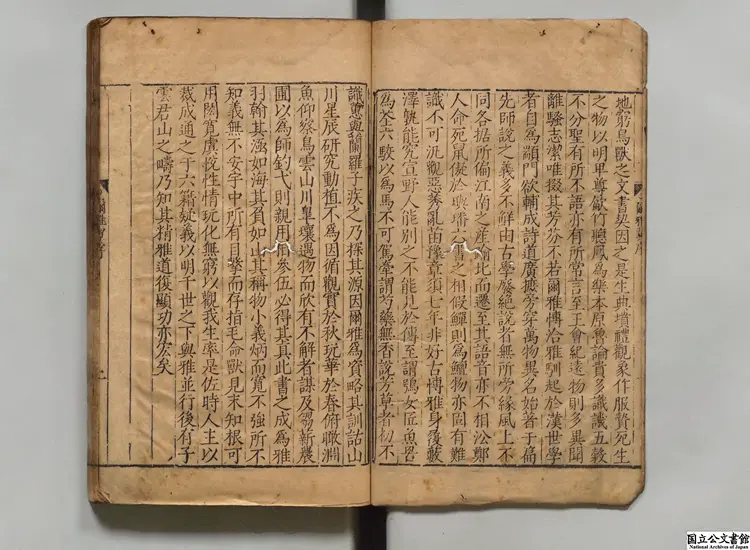 地窮鳥獸之文書契因之是生典墳禮觀象作服贄死生
之物以明卑尊歙竹聽鳳為樂本原魯論貴多識譏五穀
不分聖有所不語亦有所常言至王會紀遠物則多異聞
離騷志潔唯掇其芳芬不若爾雅博洽雅馴起於漢世學
者自為顓門欲輔成詩道廣摭旁穿萬物異名始著于篇
先師說之義多不鮮由古學廢絕說者無所旁緣風土不
同各据所偏江南之產踰北而遷至其語音亦不相沿鄭
人命死鼠儗於璵璠六書之相假鱓則為鱣物亦固有難
識不可汎觀惡莠亂苗豫章須七年非好古博雅身履藪
澤孰能究宣野人能別之不能見於傳至謂鴞女匠魚罟
為荃六駮以為馬不可駕牽謂芍藥無香說芳草者初不
識蕙與蘭羅子疾之乃探其源因爾雅為資略其訓詁山
川星辰研究動植不為因循觀實於秋玩華於春俯瞰淵
魚仰察鳥雲山川皐壤遇物而欣有不解者謀及芻薪農
圃以為師釣弋則親用相參伍必得其真此書之成為雅
羽翰其涵如海其負如山其稱物小義炳而寬不強所不
知義無不安宇中所有目擊而存指毛命獸見末知根可
用閎覽慮悅性情玩化無窮以觀我生率是佐時人主以
裁成通之于六籍疑義以明千世之下與雅並行後有子
雲君山之疇乃知其精雅道復顯功亦宏矣
爾雅翼序
国立公文書館
National Archives of Japan